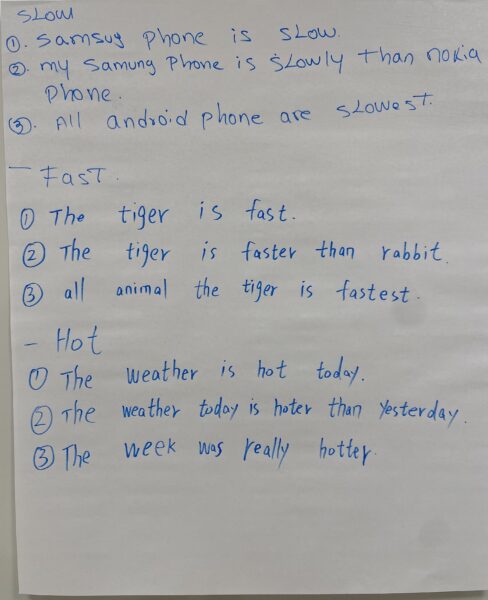 SLOW
①. Samsug phone is slow.
②. my Samung Phone is slowly than nokia
phone.
③. All android phone are slowest.
– Fast.
① The tiger is fast.
② The tiger is faster than rabbit.
③ all animal the tiger is fastest.
– Hot
① The weather is hot today.
② The weather today is hoter than yesterday.
③ The week was really hotter.